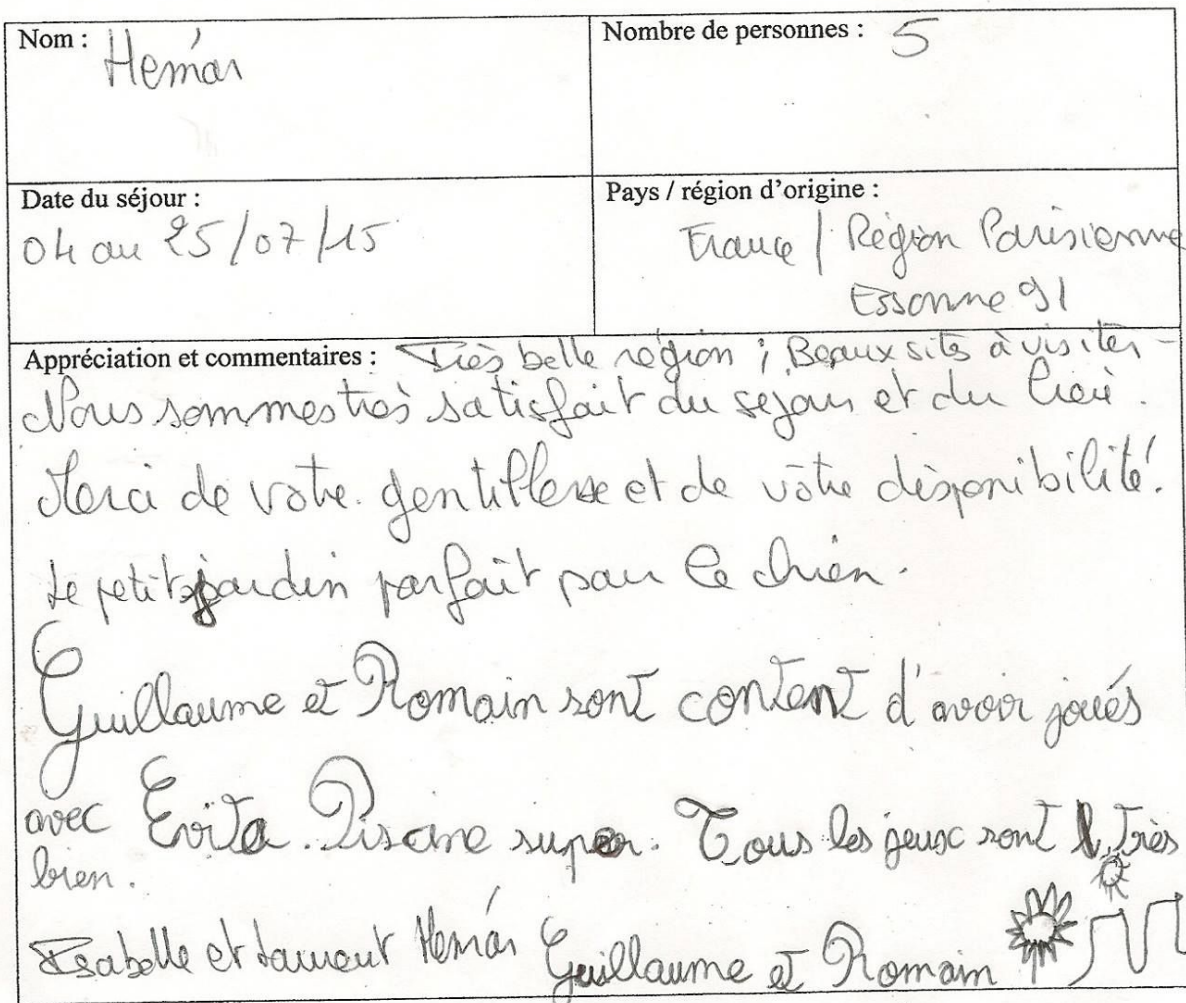 Nom : Hemár
Nombre de personnes : 5
Date du séjour :
04 au 25/07/15
Pays / région d'origine :
France / Région Parisienne
Essonne 91
Appréciation et commentaires : Très belle région ; Beaux sites à visiter -
Nous sommes très satisfait du sejour et du lieu.
Merci de votre gentillesse et de votre disponibilité!
Le petit jardin parfait pour le chien.
Guillaume et Romain sont content d'avoir joués
avec Evita. Piscine super. Tous les jeux sont Très
bien.
Isabelle et Laurent Hemár Guillaume et Romain